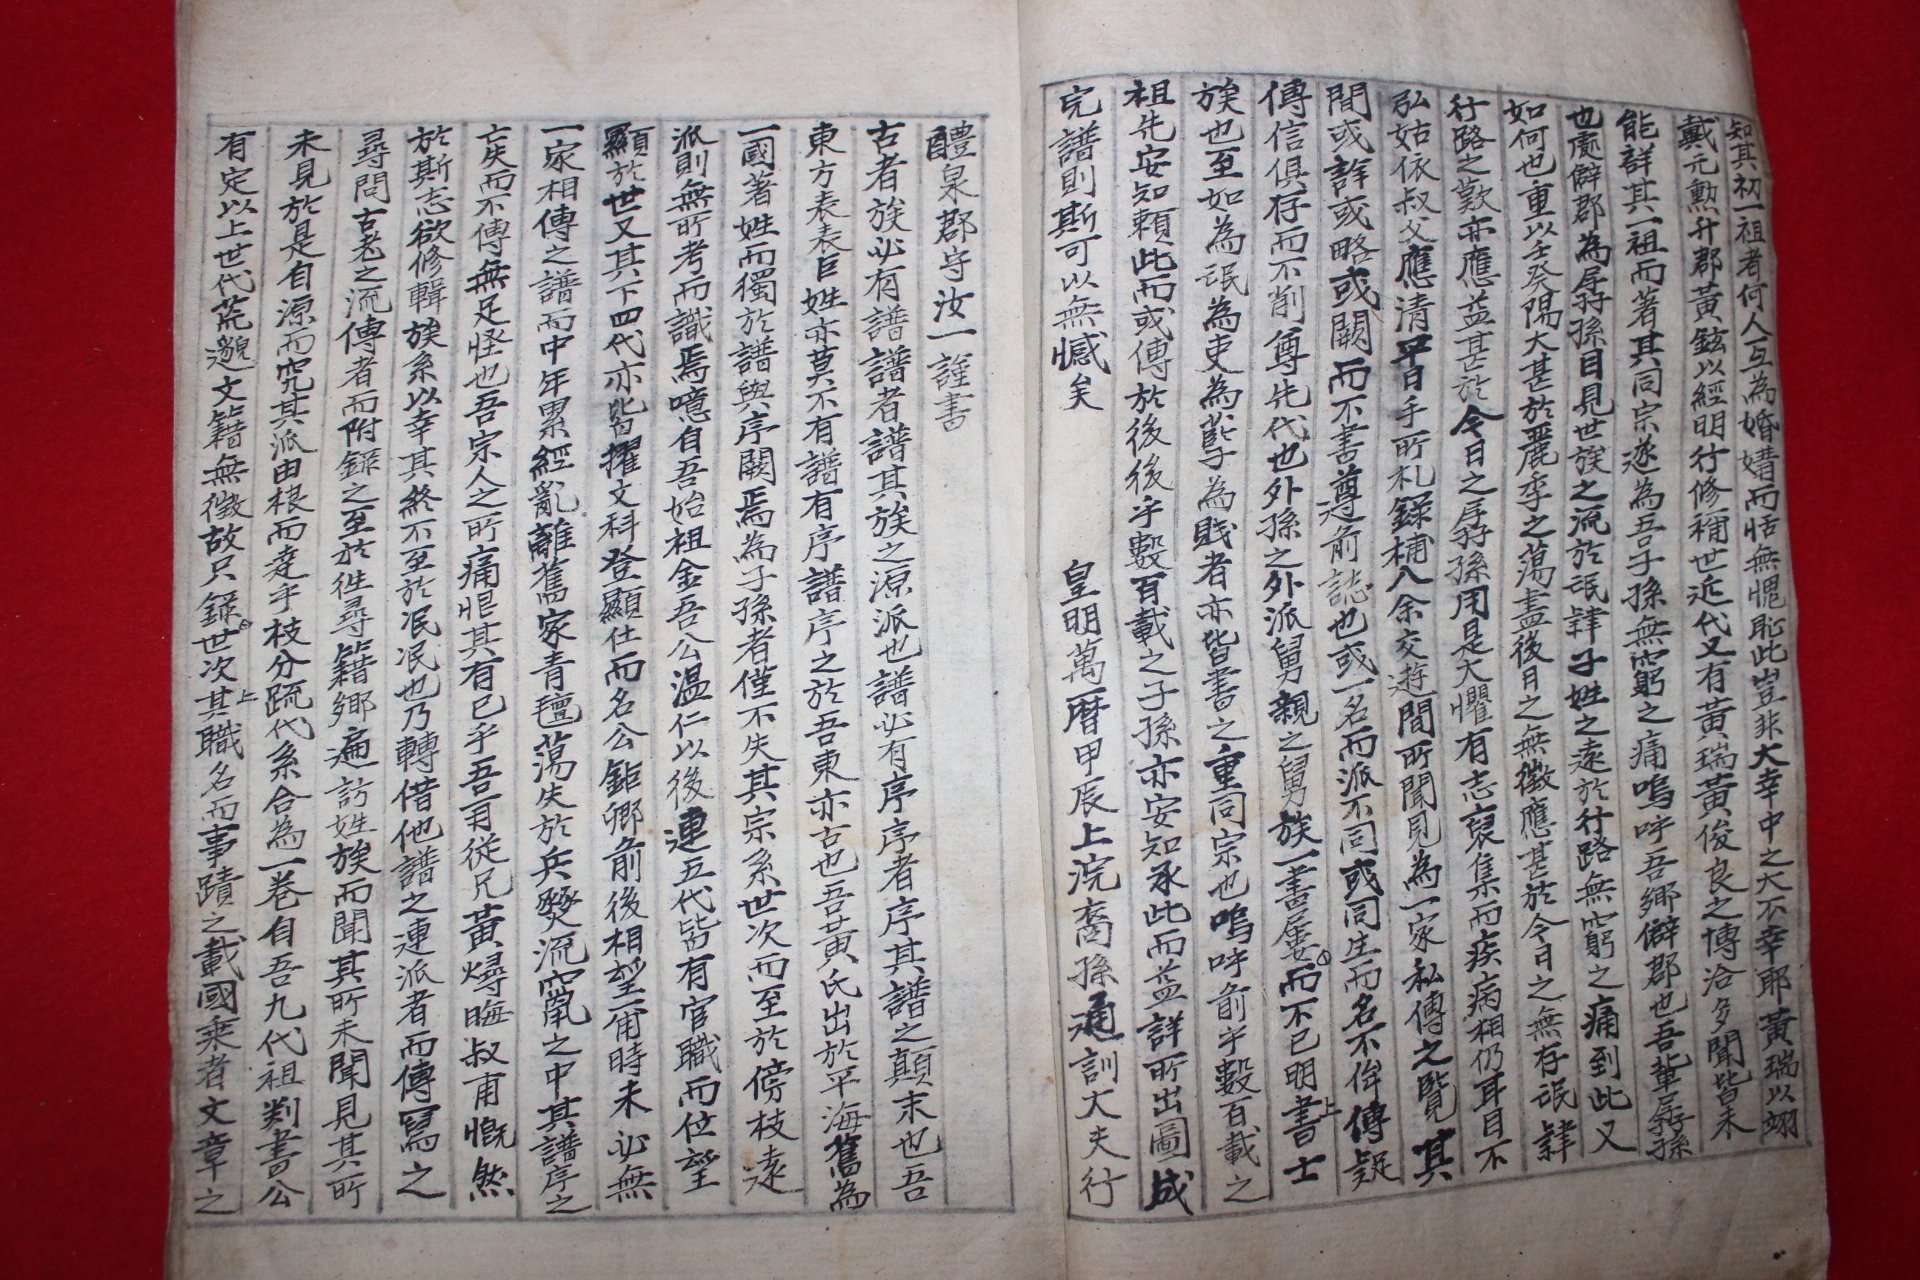 知其初一祖者何人互為婚媾而恬無愧恥此豈非大幸中之大不幸耶黃瑞以翊
戴元勳升郡黃鉉以經明行修補世近代又有黃瑞黃俊良之博洽多聞皆未
能詳其一祖而著其同宗遂為吾子孫無窮之痛嗚呼吾鄉僻郡也吾輩孱孫
也處僻郡為孱孫目見世族之流於氓肄子姓之遠於行路無窮之痛到此又
如何也重以壬癸陽大甚於麗季之蕩盡後日之無徵應甚於今日之無存氓肄
行路之歎亦應益甚於今日之孱孫用是大懼有志裒集而疾病相仍耳目不
弘姑依叔父應清平日手所札錄補以余交遊間所聞見為一家私傳之覽其
間或詳或略或闕而不書遵前誌也或一名而派不同或同生而名不侔傳疑
傳信俱存而不削尊先代也外孫之外派舅親之舅族一書屢而不已明書士
族也至如為氓為吏為孽子為賤者亦皆書之重同宗也嗚呼前乎數百載之
祖先安知賴此而或傳於後後乎數百載之子孫亦安知承此而益詳所出圖成
完譜則斯可以無憾矣 皇明萬曆甲辰上浣裔孫通訓大夫行
醴泉郡守汝一謹書
古者族必有譜譜者譜其族之源派也譜必有序序者序其譜之顛末也吾
東方表表巨姓亦莫不有譜有序譜序之於吾東亦古也吾黃氏出於平海舊為
一國著姓而獨於譜與序闕焉為子孫者僅不失其宗系世次而至於傍枝遠
派則無所考而識焉噫自吾始祖金吾公溫仁以後連五代皆有官職而位望
顯於世又其下四代亦皆擢文科登顯仕而名公鉅卿前後相望一甫時未必無
一家相傳之譜而中年累經亂離舊家青氈蕩失於兵燹流竄之中其譜序之
亡失而不傳無足怪也吾宗人之所痛恨其有已乎吾再從兄黃㷼晦叔甫慨然
於斯志欲修輯族系以幸其終不至於泯泯也乃轉借他譜之連派者而傳寫之
尋問古老之流傳者而附錄之至於徃尋籍鄉遍訪姓族而聞其所未聞見其所
未見於是自源而究其派由根而達乎枝分疏代系合為一卷自吾九代祖判書公
有定以上世代荒邈文籍無徵故只錄世次其職名而事蹟之載國乘者文章之